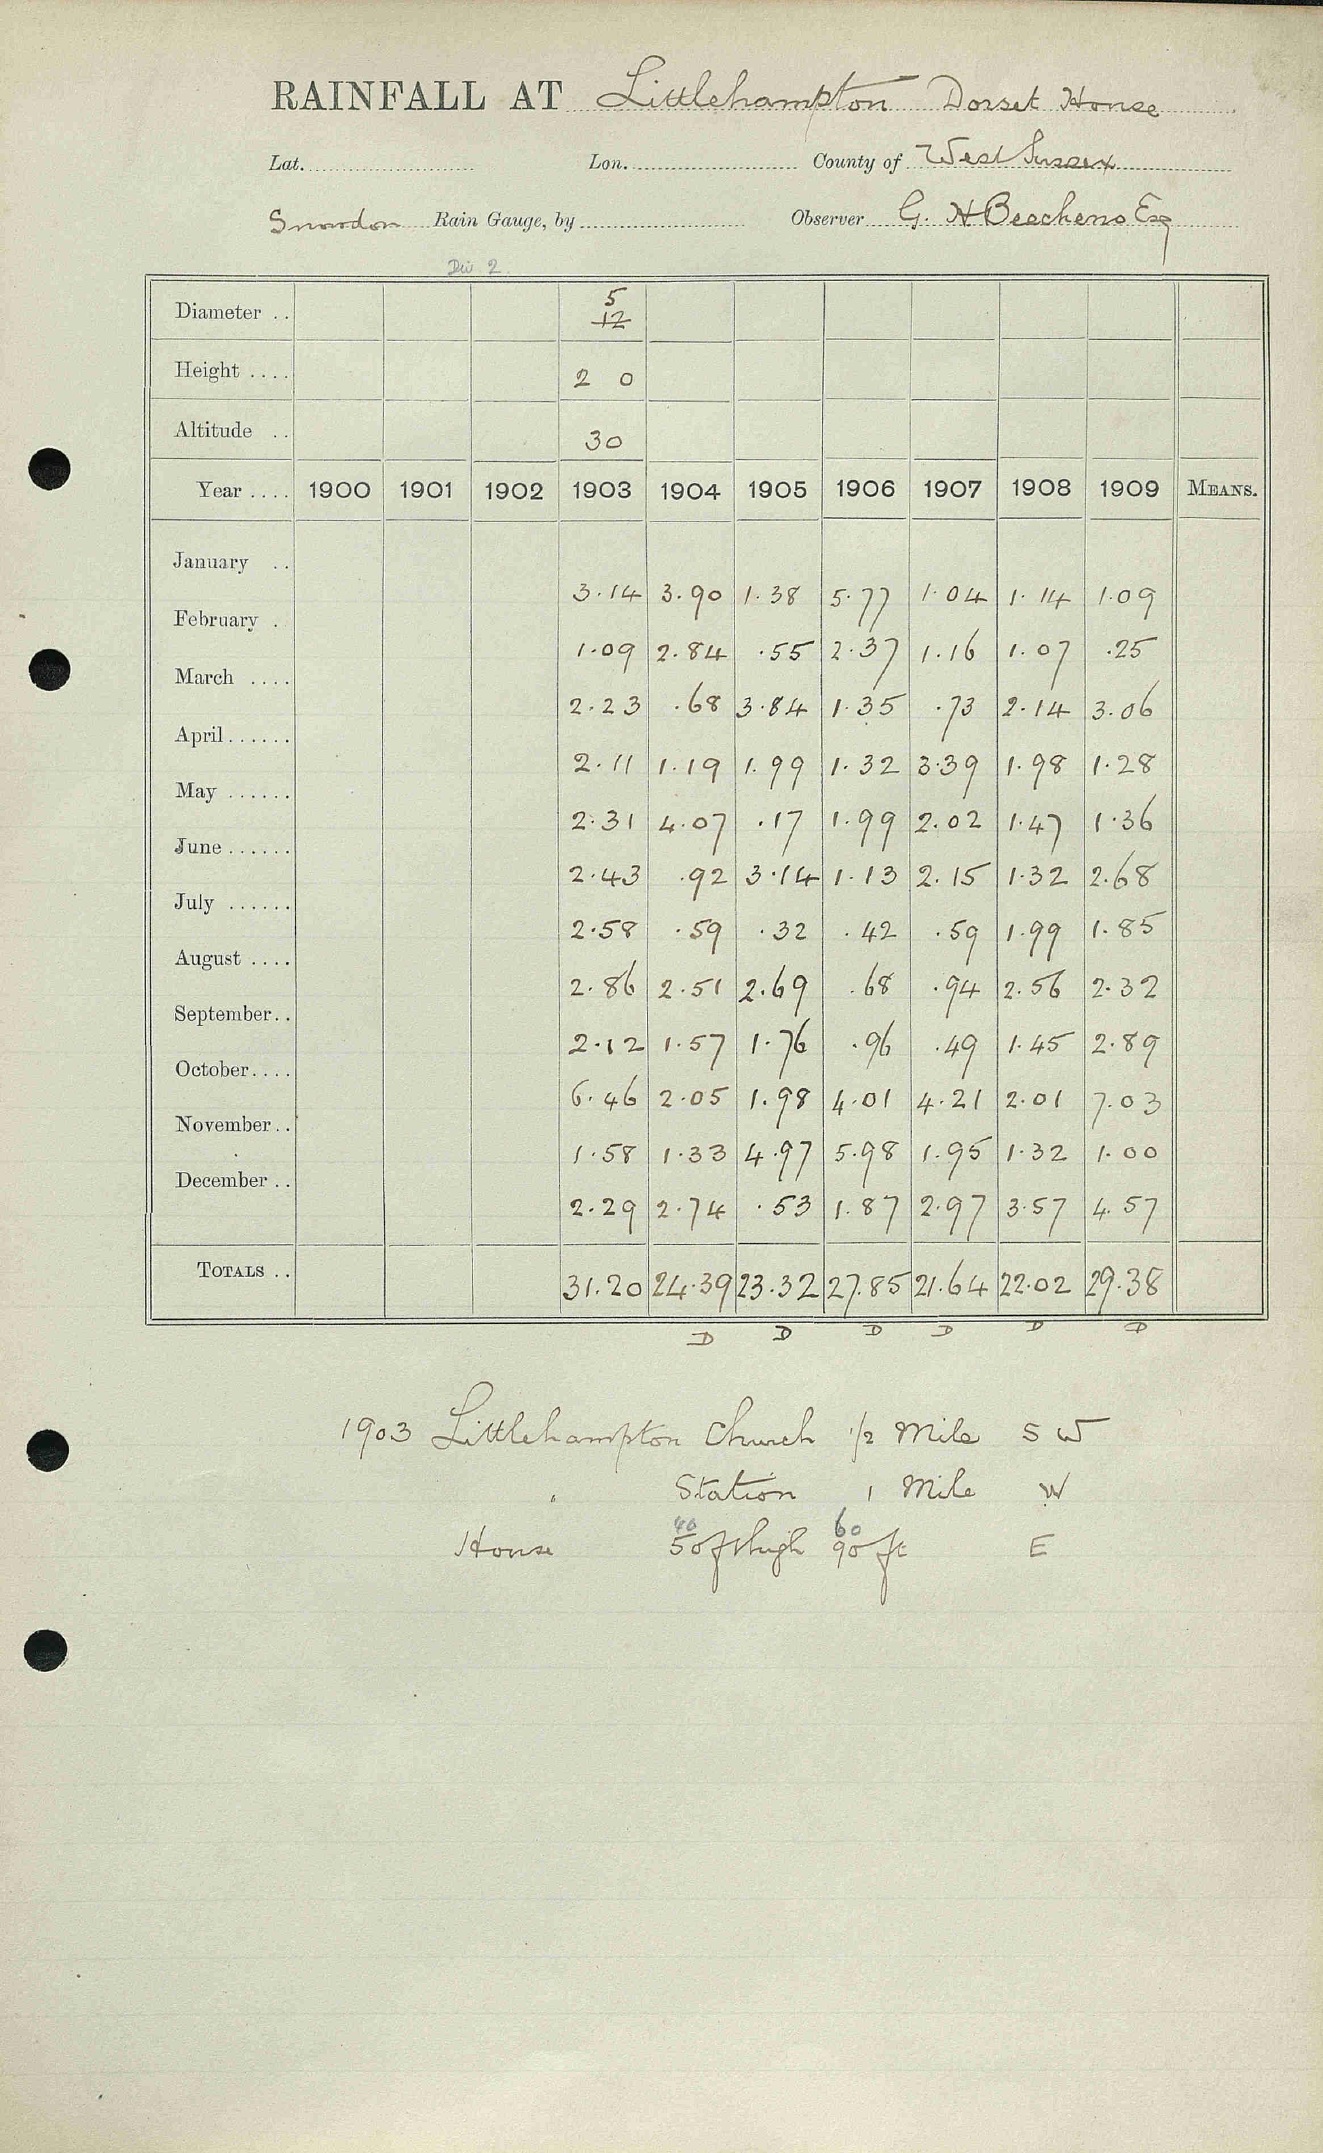 RAINFALL AT Littlehampton Dorset House
Lat. Lon. County of West Sussex
Snowdon Rain Gauge, by Observer G. H Beechens Esq
Div 2
Diameter .. 5 12
Height .... 2 0
Altitude .. 30
Year .... 1900 1901 1902 1903 1904 1905 1906 1907 1908 1909 MEANS.
January .. 3.14 3.90 1.38 5.77 1.04 1.14 1.09
February . 1.09 2.84 .55 2.37 1.16 1.07 .25
March .... 2.23 .68 3.84 1.35 .73 2.14 3.06
April...... 2.11 1.19 1.99 1.32 3.39 1.98 1.28
May ...... 2.31 4.07 .17 1.99 2.02 1.47 1.36
June ...... 2.43 .92 3.14 1.13 2.15 1.32 2.68
July ...... 2.58 .59 .32 .42 .59 1.99 1.85
August .... 2.86 2.51 2.69 .68 .94 2.56 2.32
September.. 2.12 1.57 1.76 .96 .49 1.45 2.89
October.... 6.46 2.05 1.98 4.01 4.21 2.01 7.03
November.. 1.58 1.33 4.97 5.98 1.95 1.32 1.00
December .. 2.29 2.74 .53 1.87 2.97 3.57 4.57
TOTALS .. 31.20 24.39 23.32 27.85 21.64 22.02 29.38
D D D D D D
1903 Littlehampton Church 1/2 Mile S W
" Station 1 Mile W
40 60
House 50 ft high 90 ft E